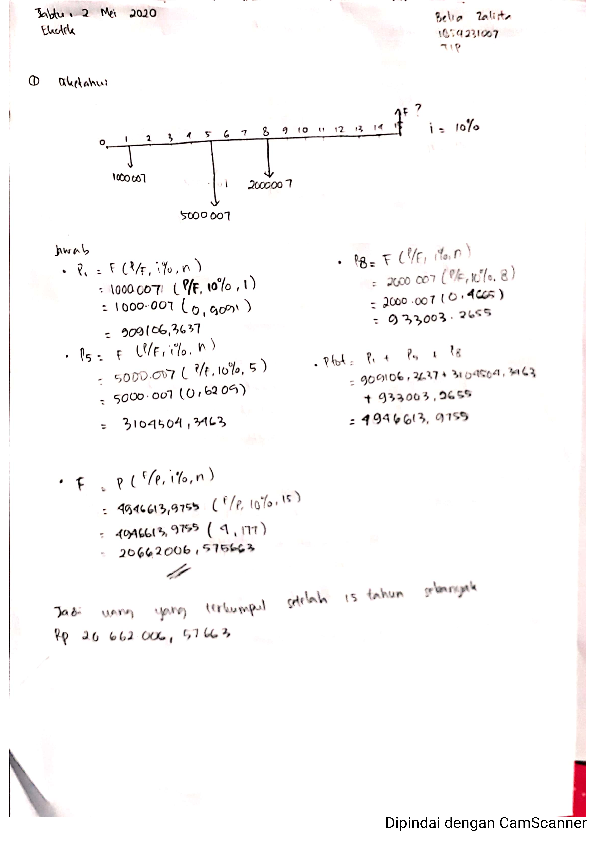 Sabtu, 2 Mei 2020
Ekotek
Belia Zalista
TIP
① Diketahui
F ?
0 1 2 3 4 5 6 7 8 9 10 11 12 13 14 15
i = 10%
1000007
5000007
2000007
Jawab
• P1 = F (P/F, i%, n)
= 1000.007 (P/F, 10%, 1)
= 1000.007 (0,9091)
= 909106,3637
• P5 = F (P/F, i%, n)
= 5000.007 (P/F, 10%, 5)
= 5000.007 (0,6209)
= 3104504,3463
• P8 = F (P/F, i%, n)
= 2000 007 (P/F, 10%, 8)
= 2000.007 (0,4665)
= 933003.2655
• Ptot = P1 + P5 + P8
= 909106,3637 + 3104504,3463
+ 933003,2655
= 4946613,9755
• F = P (F/P, i%, n)
= 4946613,9755 (F/P, 10%, 15)
= 4946613,9755 (4,177)
= 20662006,575663
Jadi uang yang terkumpul setelah 15 tahun sebanyak
Rp 20 662 006, 57663
Dipindai dengan CamScanner